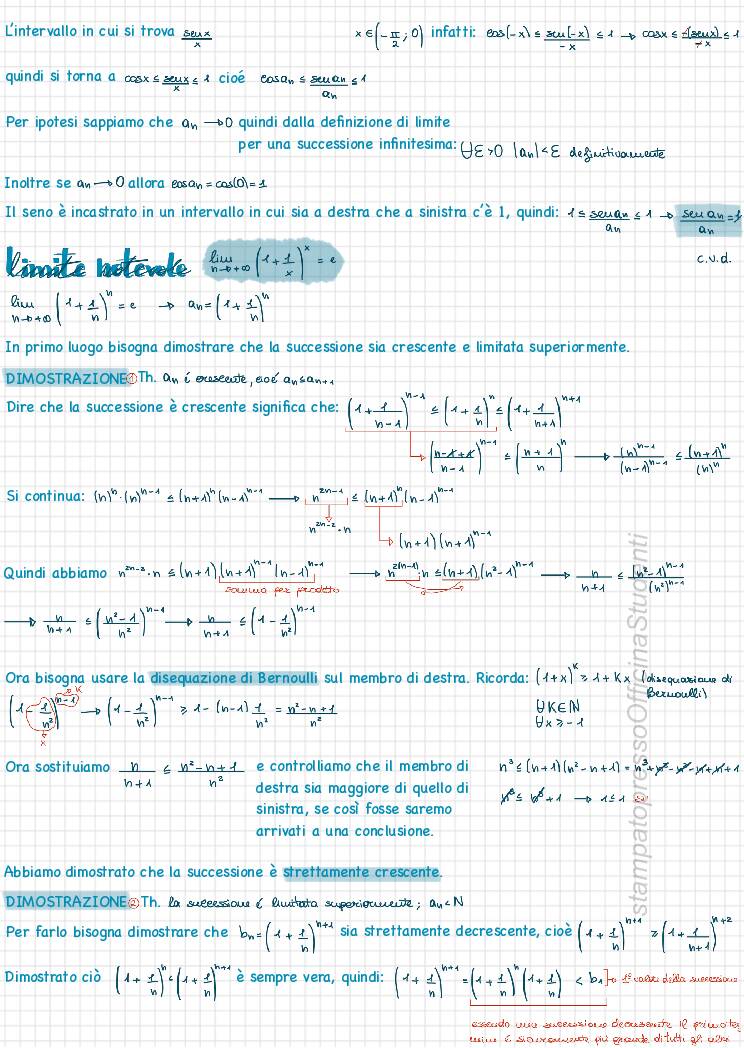 L'intervallo in cui si trova senx/x   x∈(-π/2; 0) infatti: cos(-x) ≤ sen(-x)/-x ≤ 1 → cosx ≤ -(senx)/-x ≤ 1
quindi si torna a cosx ≤ senx/x ≤ 1 cioé cosan ≤ senan/an ≤ 1
Per ipotesi sappiamo che an → 0 quindi dalla definizione di limite
per una successione infinitesima: ∀ε>0 |an|<ε definitivamente
Inoltre se an → 0 allora cosan = cos(0) = 1
Il seno è incastrato in un intervallo in cui sia a destra che a sinistra c'è 1, quindi: 1 ≤ senan/an ≤ 1 → senan/an = 1
limite notevole lim n→+∞ (1+1/x)^x = e   c.v.d.
lim n→+∞ (1+1/n)^n = e → an = (1+1/n)^n
In primo luogo bisogna dimostrare che la successione sia crescente e limitata superiormente.
DIMOSTRAZIONE① Th. an é crescente, cioé an≤an+1
Dire che la successione è crescente significa che: (1+1/(n-1))^(n-1) ≤ (1+1/n)^n ≤ (1+1/(n+1))^(n+1)
((n-1+1)/(n-1))^(n-1) ≤ ((n+1)/n)^n → (n)^(n-1)/(n-1)^(n-1) ≤ (n+1)^n/(n)^n
Si continua: (n)^n·(n)^(n-1) ≤ (n+1)^n (n-1)^(n-1) → n^(2n-1) ≤ (n+1)^n (n-1)^(n-1)
n^(2n-2)·n
(n+1)(n+1)^(n-1)
Quindi abbiamo n^(2n-2)·n ≤ (n+1)(n+1)^(n-1)(n-1)^(n-1) → n^(2(n-1))·n ≤ (n+1)(n²-1)^(n-1) → n/(n+1) ≤ (n²-1)^(n-1)/(n²)^(n-1)
somma per prodotto
→ n/(n+1) ≤ ((n²-1)/n²)^(n-1) → n/(n+1) ≤ (1-1/n²)^(n-1)
Ora bisogna usare la disequazione di Bernoulli sul membro di destra. Ricorda: (1+x)^k ≥ 1+Kx (disequazione di Bernoulli)
(1-1/n²)^(n-1) → K x → (1-1/n²)^(n-1) ≥ 1-(n-1)1/n² = (n²-n+1)/n²   ∀K∈N
∀x≥-1
Ora sostituiamo n/(n+1) ≤ (n²-n+1)/n² e controlliamo che il membro di   n³ ≤ (n+1)(n²-n+1) = n³+n²-n²-n+n+1
destra sia maggiore di quello di
sinistra, se così fosse saremo   n³ ≤ n³+1 → 1≤1
arrivati a una conclusione.
Abbiamo dimostrato che la successione è strettamente crescente.
DIMOSTRAZIONE② Th. la successione é limitata superiormente; an<N
Per farlo bisogna dimostrare che bn = (1+1/n)^(n+1) sia strettamente decrescente, cioè (1+1/n)^(n+1) ≥ (1+1/(n+1))^(n+2)
Dimostrato ciò (1+1/n)^n < (1+1/n)^(n+1) è sempre vera, quindi: (1+1/n)^(n+1) = (1+1/n)^n (1+1/n) < b1 → 1° valore della successione
essendo una successione decrescente il primo ter
mine é sicuramente più grande di tutti gli altri
stampatopressoOfficinaStudenti